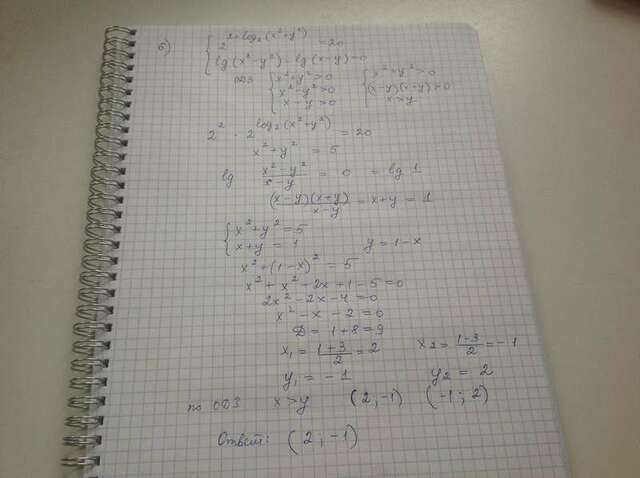 б) { 2^(2+log₂(x²+y²)) = 20
lg(x²-y²) - lg(x-y) = 0
ОДЗ { x²+y²>0 { x²+y²>0
x²-y²>0 (x-y)(x+y)>0
x-y>0 x>y
2² · 2^(log₂(x²+y²)) = 20
x²+y² = 5
lg (x²-y²)/(x-y) = 0 = lg 1
((x-y)(x+y))/(x-y) = x+y = 1
{ x²+y²=5
x+y = 1 y=1-x
x²+(1-x)² = 5
x²+x²-2x+1-5=0
2x²-2x-4=0
x²-x-2=0
D=1+8=9
x₁ = (1+3)/2 = 2 x₂ = (1-3)/2 = -1
y₁ = -1 y₂ = 2
по ОДЗ x>y (2,-1) (-1;2)
Ответ: (2;-1)